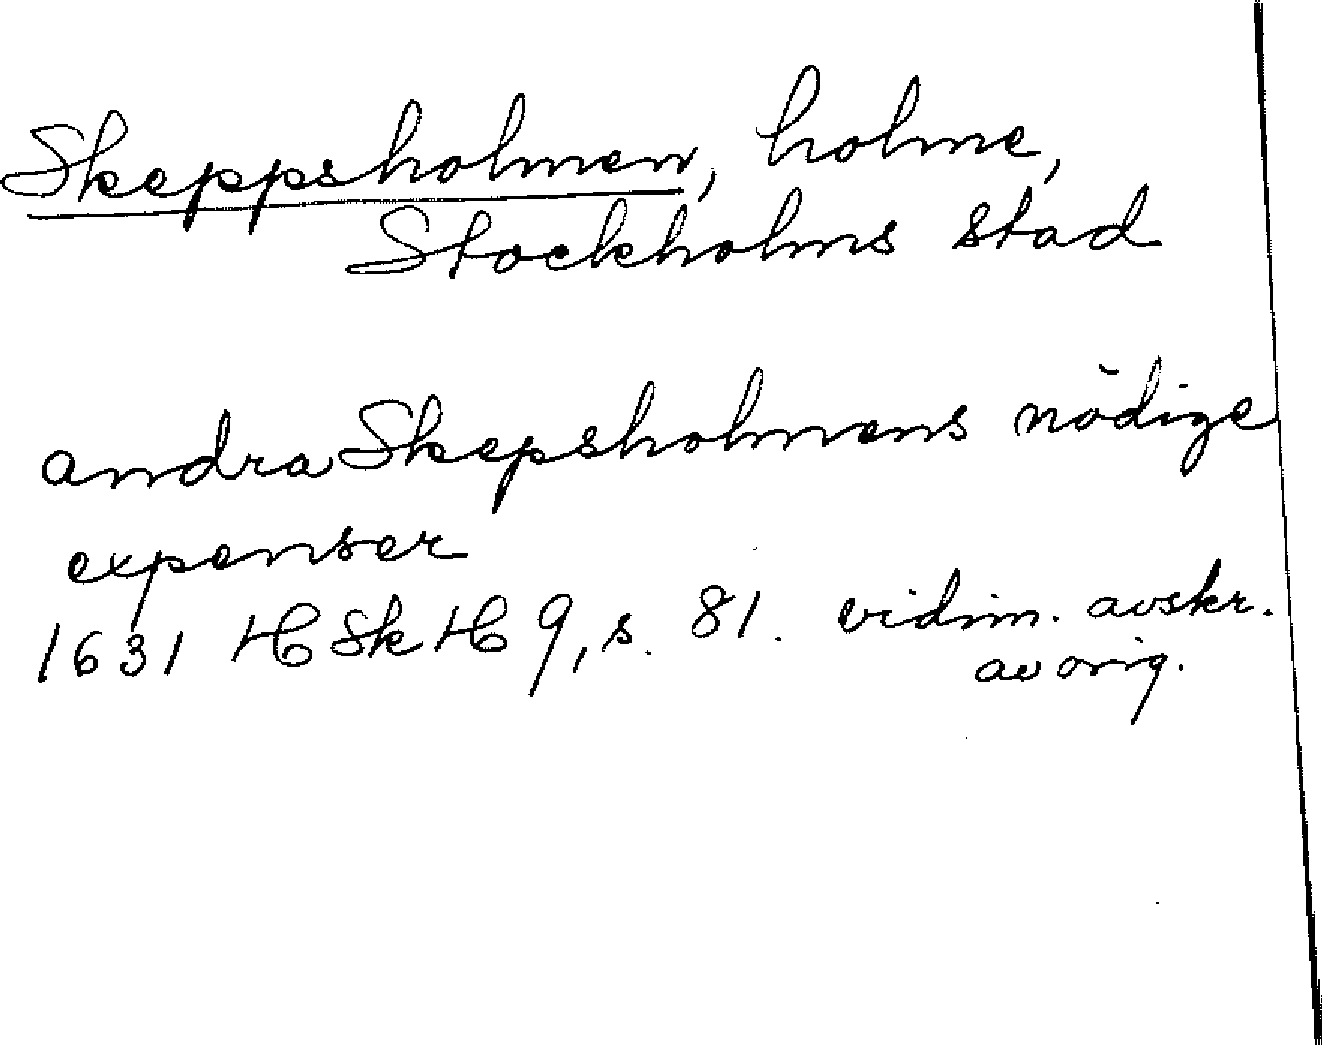 Skeppsholmen, holme,
Stockholms stad
andra Skepsholmens nödige
expenser
1631 HSkH 9, s. 81. vidim. avskr.
av orig.